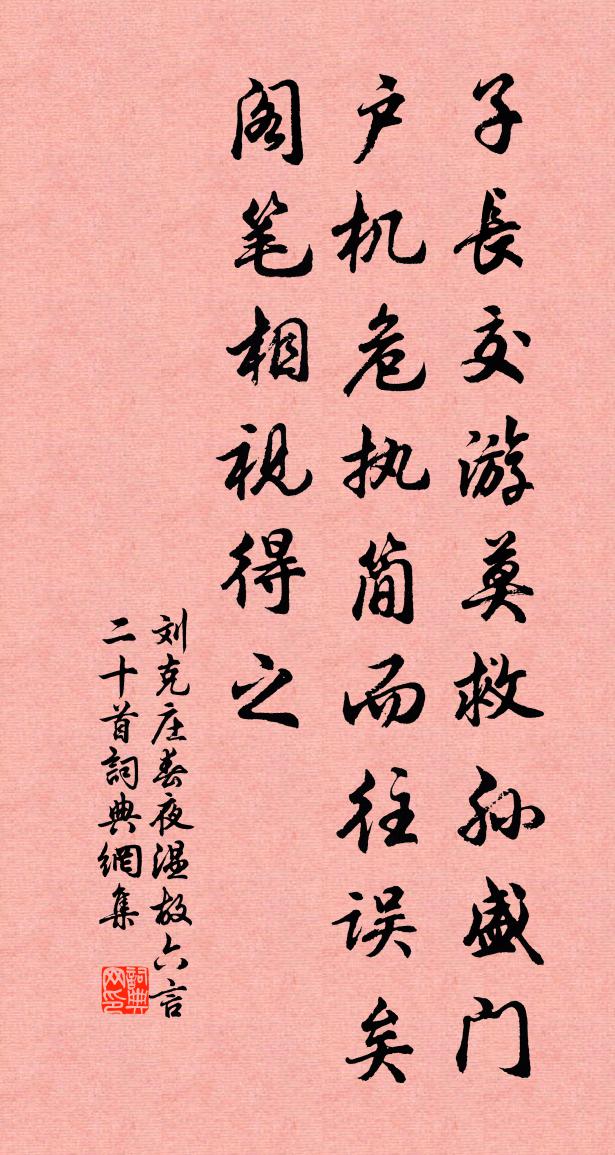 子長交游莫救孙盛门
户机危执简而往误矣
阁笔相视得之
刘克庄春夜温故六言
二十首詞典網集
詞典网印